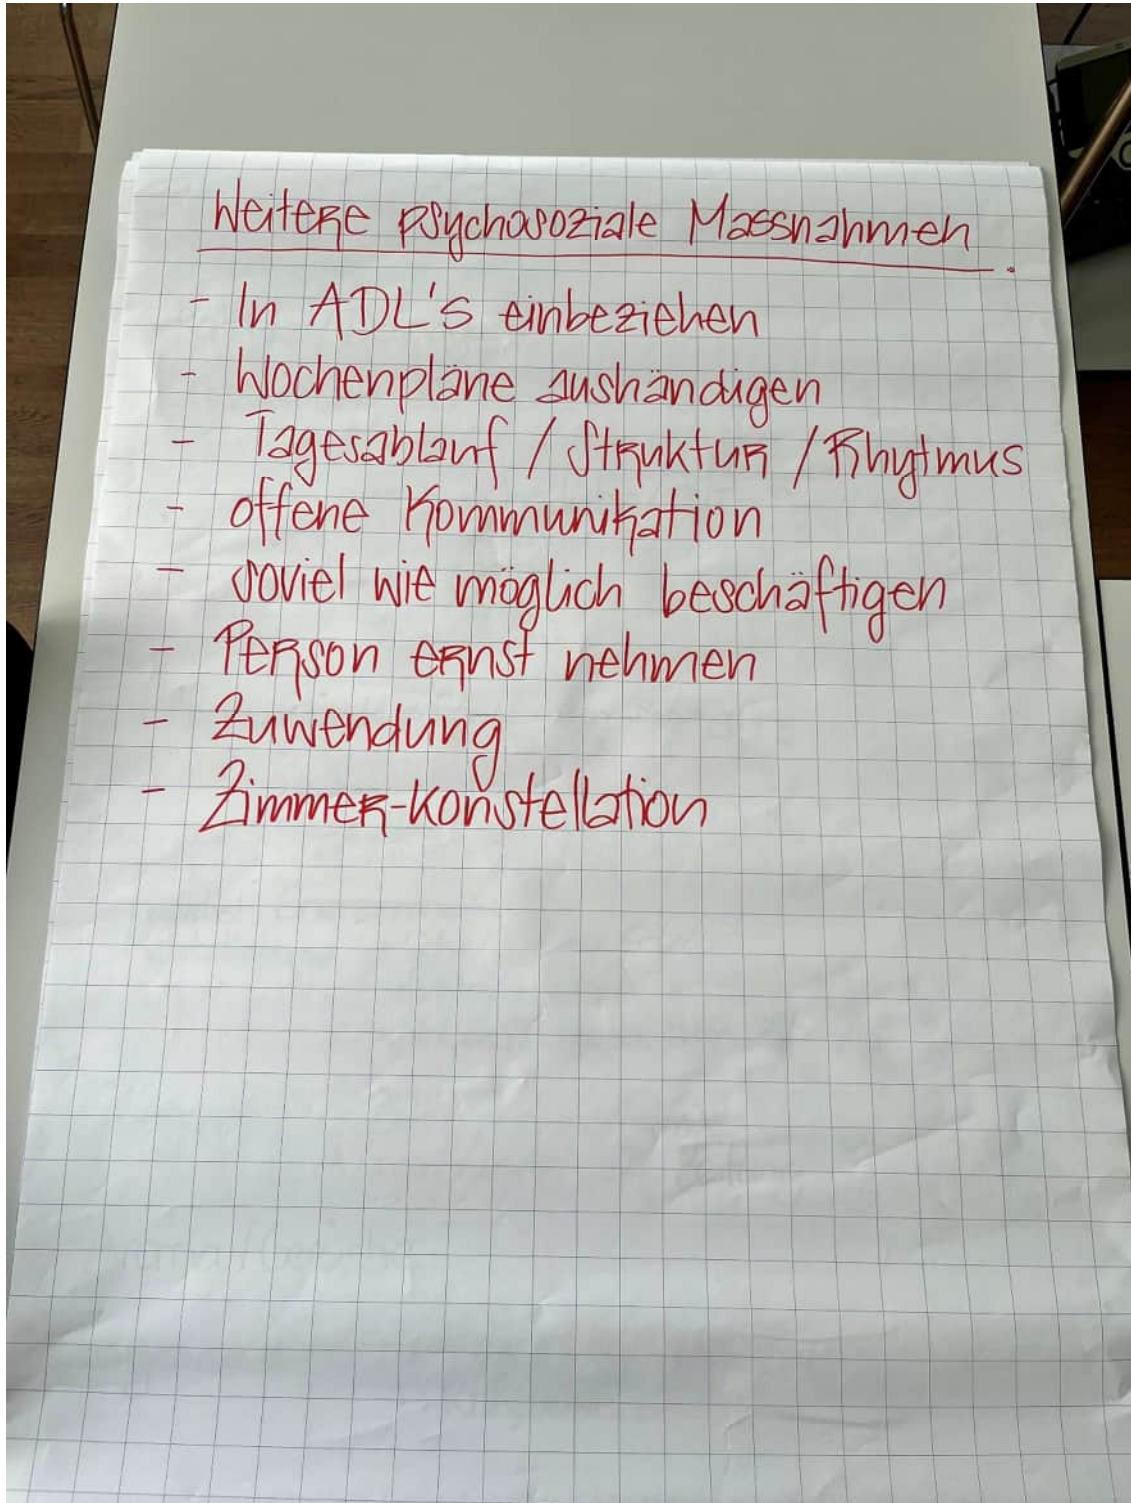 Weitere psychosoziale Massnahmen.
- In ADL's einbeziehen
- Wochenpläne aushändigen
- Tagesablauf / Struktur / Rhytmus
- offene Kommunikation
- soviel wie möglich beschäftigen
- Person ernst nehmen
- Zuwendung
- Zimmer-Konstellation